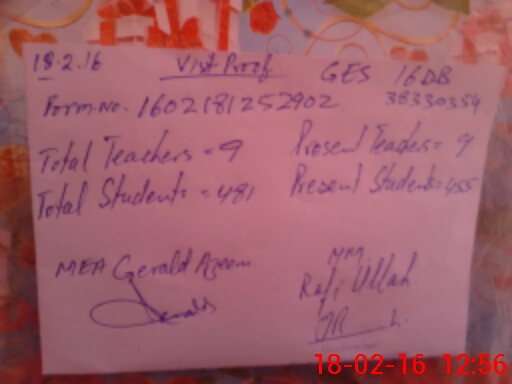 18.2.16 Visit Proof GES 16DB
Form.No. 1602181252902 38330359
Total Teachers = 9 Present Teachers = 9
Total Students = 481 Present Students = 455
MEA Gerald Azeem
Rafi Ullah
18-02-16 12:56